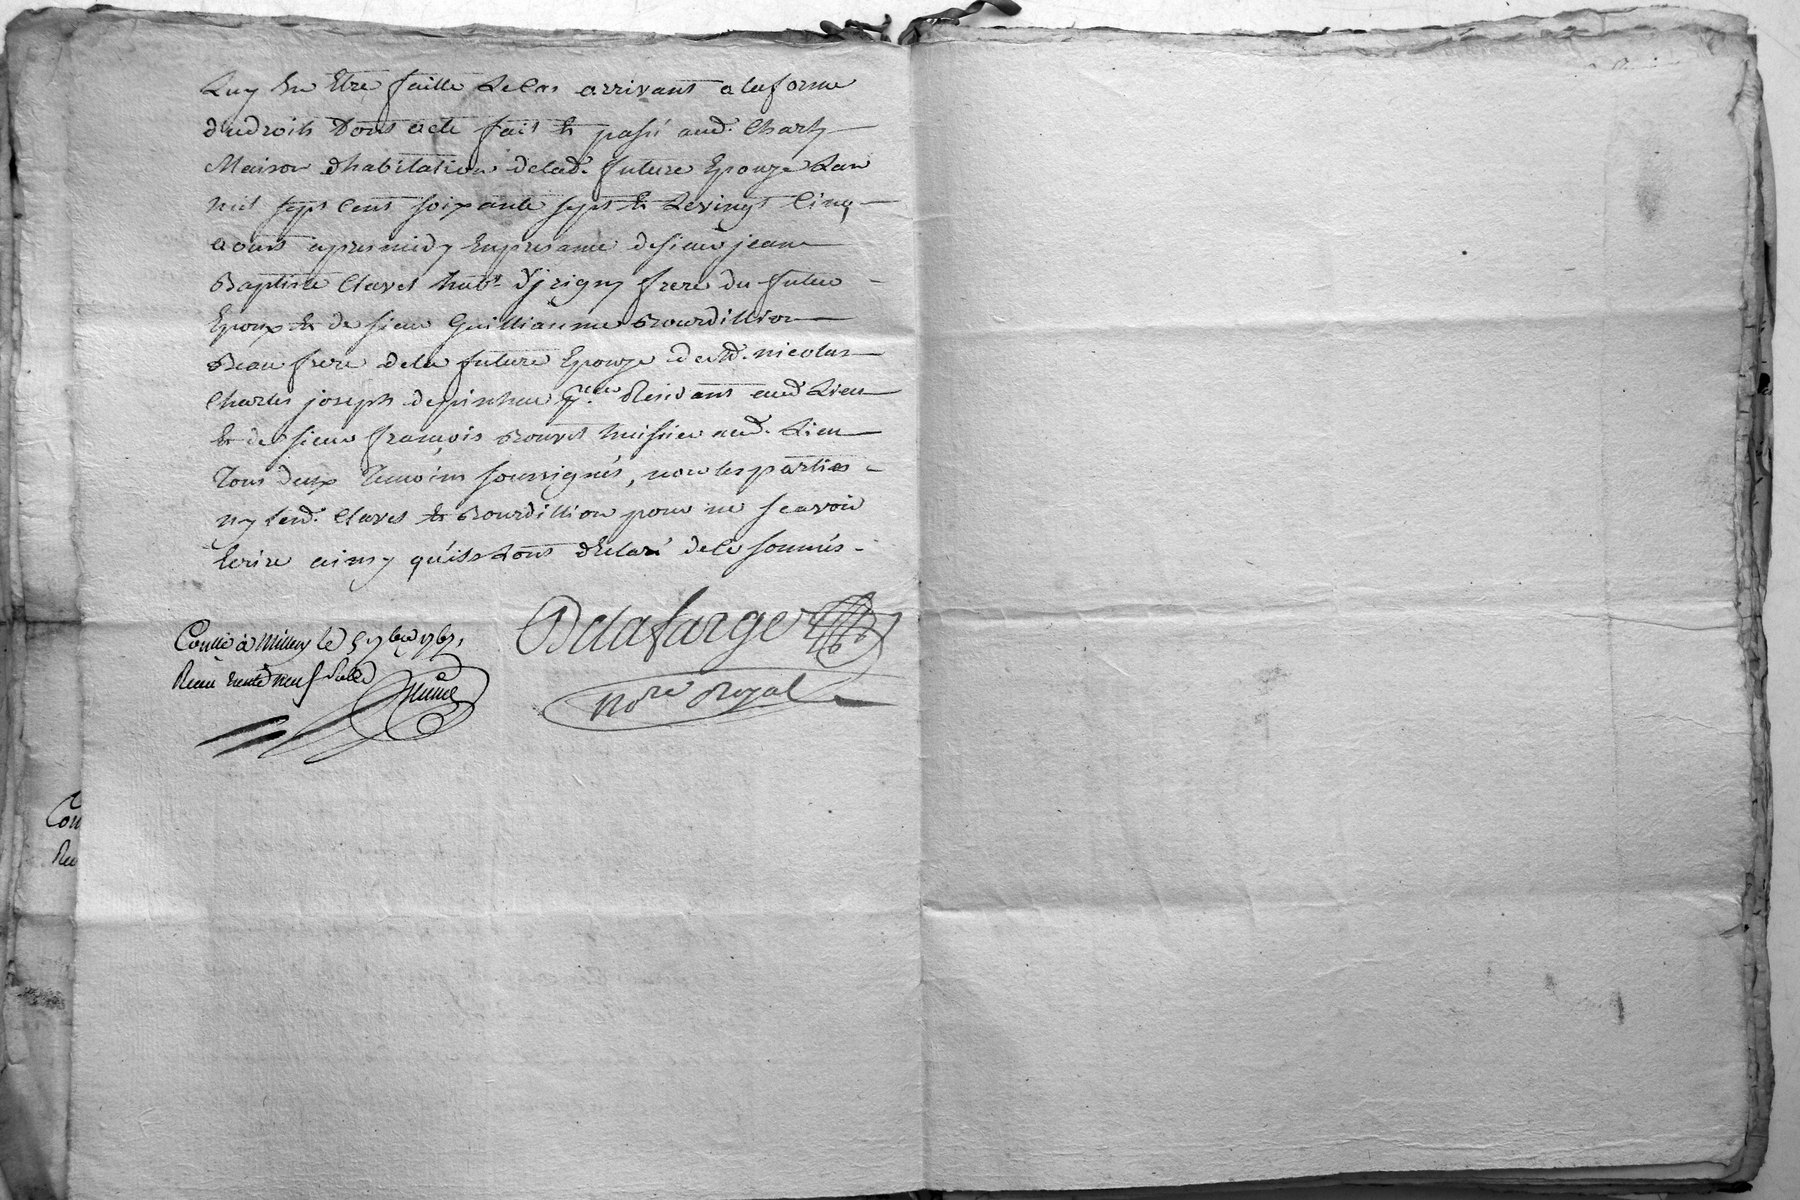 Luy En Etre faitte Le Cas arrivant a la forme
du droit Dont acte fait et passé aud. Charly
Maison d'habitation de lad. future Epouze L'an
mil sept cent soixante sept et Le vingt Cinq
aoust apres midy En presance de sieur jean
Baptiste Clavel hab.t d'jrigny frere du futur
Epoux et de sieur Guilliaume Bourdillion
Beau frere de la future Epouze de Md. nicolas
Charles joseph p.en Residant aud Lieu
et de sieur françois Bouvet huissier aud. Lieu
Tous deux Temoins soussignés, non les parties
ny lesd. Clavel et Bourdillion pour ne scavoir
Ecrire ainsy qu'ils L'ont declaré de ce sommés
Delafarge
No.re Royal
Conllé à Millery le 5 7bre 1767
Receu trente neuf sols
Con
Rec